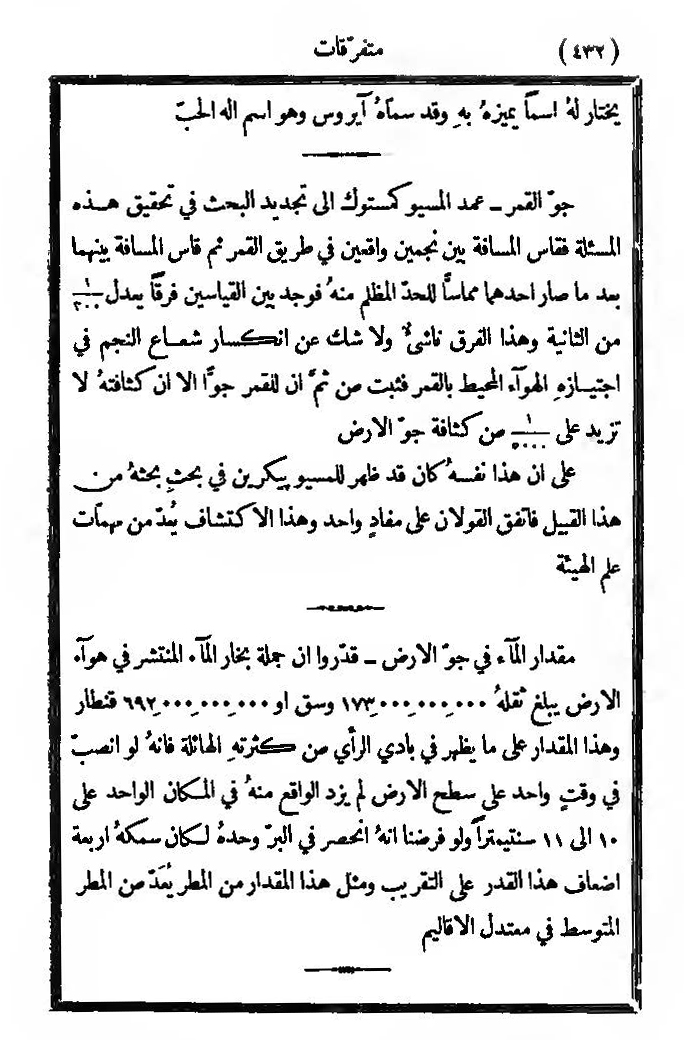 (٤٣٢) متفرّقات
يختار لهُ اسمًا يميزهُ بهِ وقد سماهُ آيروس وهو اسم اله الحبّ
جوّ القمر – عمد المسيو كمستوك الى تجديد البحث في تحقيق هذه
المسئلة فقاس المسافة بين نجمين واقعين في طريق القمر ثم قاس المسافة بينهما
بعد ما صار احدهما مماسًّا للحدّ المظلم منهُ فوجد بين القياسين فرقًا يعدل
من الثانية وهذا الفرق ناشئٌ ولا شك عن انكسار شعاع النجم في
اجتيازهِ الهوآء المحيط بالقمر فثبت من ثمَّ ان للقمر جوًّا الا ان كثافتهُ لا
تزيد على من كثافة جوّ الارض
على ان هذا نفسهُ كان قد ظهر للمسيو پيكرين في بحثٍ بحثهُ من
هذا القبيل فاتفق القولان على مفادٍ واحد وهذا الاكتشاف يُعدّ من مهمّات
علم الهيئة
مقدار المآء في جوّ الارض – قدّروا ان جملة بخار المآء المنتشر في هوآء
الارض يبلغ ثقلهُ ١٧٣٬٠٠٠٬٠٠٠٬٠٠٠ وسق او ٦٩٢٬٠٠٠٬٠٠٠٬٠٠٠ قنطار
وهذا المقدار على ما يظهر في بادي الرأي من كثرتهِ الهائلة فانهُ لو انصبّ
في وقتٍ واحد على سطح الارض لم يزد الواقع منهُ في المكان الواحد على
١٠ الى ١١ سنتيمترًا ولو فرضنا انهُ انحصر في البرّ وحدهُ لكان سمكهُ اربعة
اضعاف هذا القدر على التقريب ومثل هذا المقدار من المطر يُعَدّ من المطر
المتوسط في معتدل الاقاليم